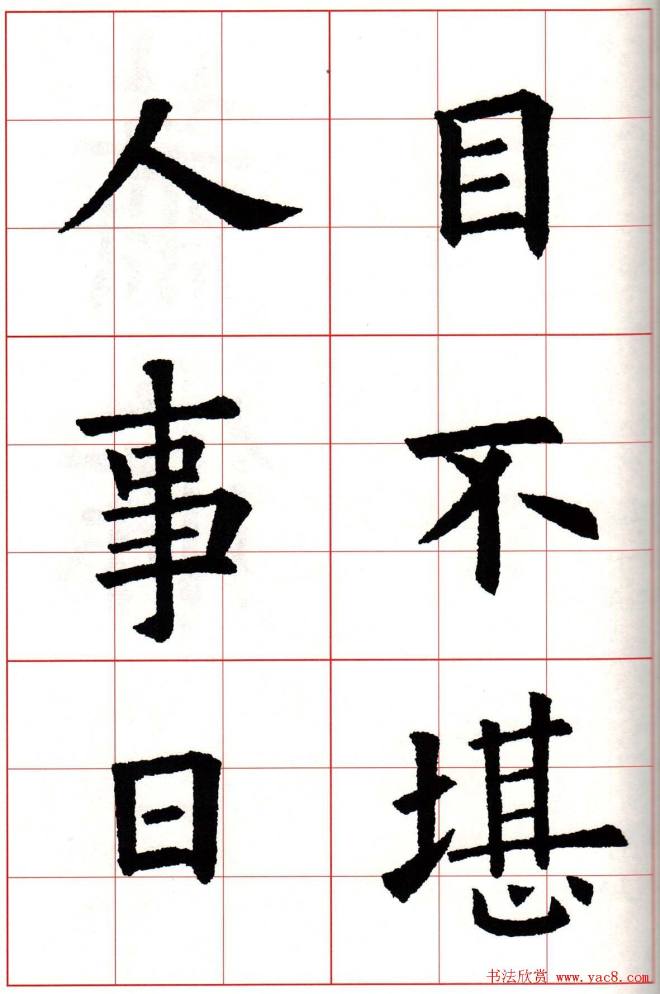 目不堪
人事日
书法欣赏 www.yac8.com